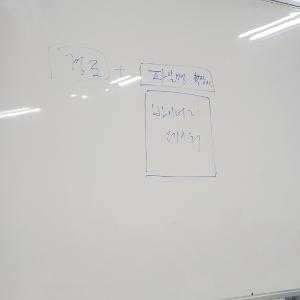 경로 + 파일명 확장자
바이너리
데이터